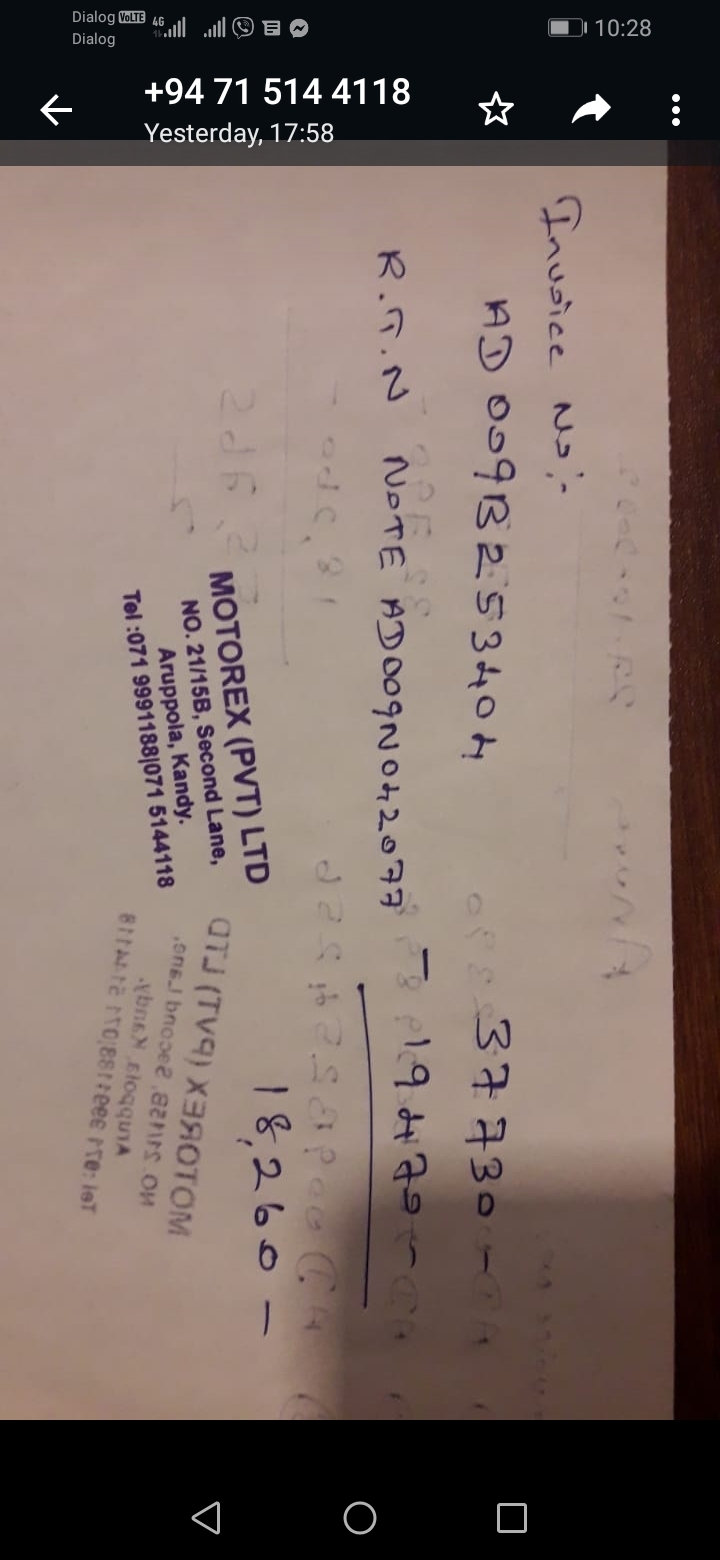 Dialog VoLTE 4G 10:28
Dialog
+94 71 514 4118
Yesterday, 17:58
Invoice No:-
AD009B253404 37730-
R.T.N NOTE AD009N042077 - 19470-
18,260-
MOTOREX (PVT) LTD
NO. 21/15B, Second Lane,
Aruppola, Kandy.
Tel :071 9991188|071 5144118